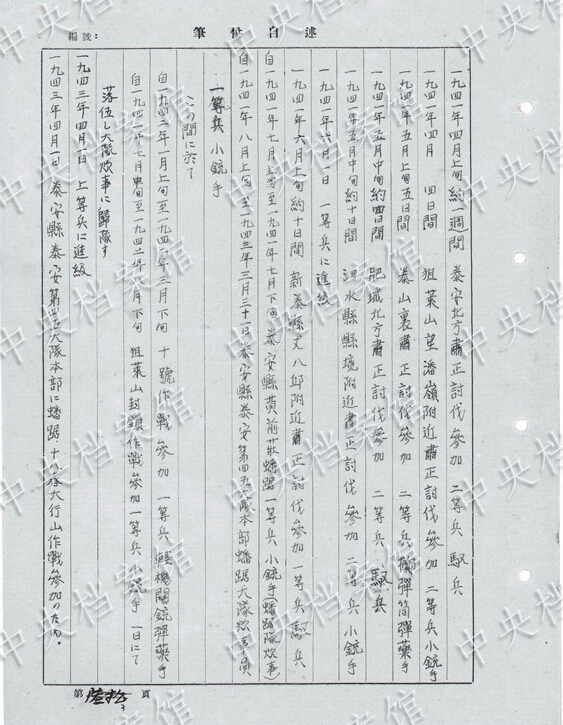 述自供筆
編號:
一九四一年四月上旬約一週間 泰安北方肅正討伐參加 二等兵 馭兵
一九四一年四月 四日間 徂萊山望潘嶺附近肅正討伐參加 二等兵 小銃手
一九四一年五月上旬五日間 泰山裏肅正討伐參加 二等兵 擲彈筒彈藥手
一九四一年五月中旬約四日間 肥城北方肅正討伐參加 二等兵 馭兵
一九四一年五月中旬約十日間 泗水縣縣境附近肅正討伐參加 二等兵 小銃手
一九四一年六月一日 一等兵に進級
一九四一年六月上旬約十日間 新泰縣丈八邱附近肅正討伐參加 一等兵 馭兵
自一九四一年七月上旬至一九四一年七月下旬 泰安縣黃前莊蟠踞 一等兵 小銃手(蟠踞隊炊事)
自一九四一年八月上旬至一九四三年三月三十一日 泰安縣泰安第四五大隊本部蟠踞大隊炊事員
一等兵 小銃手
この間に於て
自一九四二年一月上旬至一九四二年三月下旬 十號作戰參加 一等兵 輕機關銃彈藥手
自一九四二年七月中旬至一九四二年八月下旬 徂萊山封鎖作戰參加 一等兵 小銃手 一日にて
落伍し大隊炊事に歸隊す
一九四三年四月一日 上等兵に進級
一九四三年四月一日 泰安縣泰安第四五大隊本部に蟠踞 十八春太行山作戰參加のため。
第 頁
中央档案馆